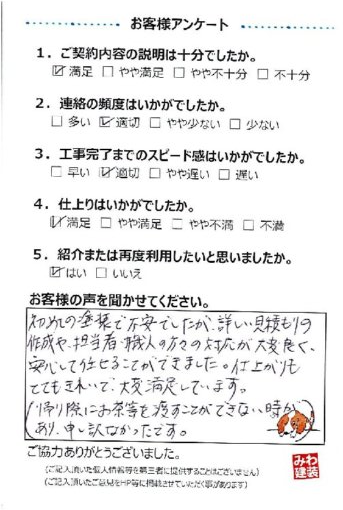 お客様アンケート
1．ご契約内容の説明は十分でしたか。
☑ 満足 □ やや満足 □ やや不十分 □ 不十分
2．連絡の頻度はいかがでしたか。
□ 多い ☑ 適切 □ やや少ない □ 少ない
3．工事完了までのスピード感はいかがでしたか。
□ 早い ☑ 適切 □ やや遅い □ 遅い
4．仕上りはいかがでしたか。
☑ 満足 □ やや満足 □ やや不満 □ 不満
5．紹介または再度利用したいと思いましたか。
☑ はい □ いいえ
お客様の声を聞かせてください。
初めての塗装で不安でしたが、詳しい見積もりの
作成や、担当者・職人の方々の対応が大変良く、
安心して任せることができました。仕上がりも
とてもきれいで、大変満足しています。
帰り際にお茶等を渡すことができない時が
あり、申し訳なかったです。
ご協力ありがとうございました。
(ご記入頂いた個人情報等を第三者に提供することはございません)
(ご記入頂いたご意見をHP等に掲載させていただく事があります)
みわ
建装